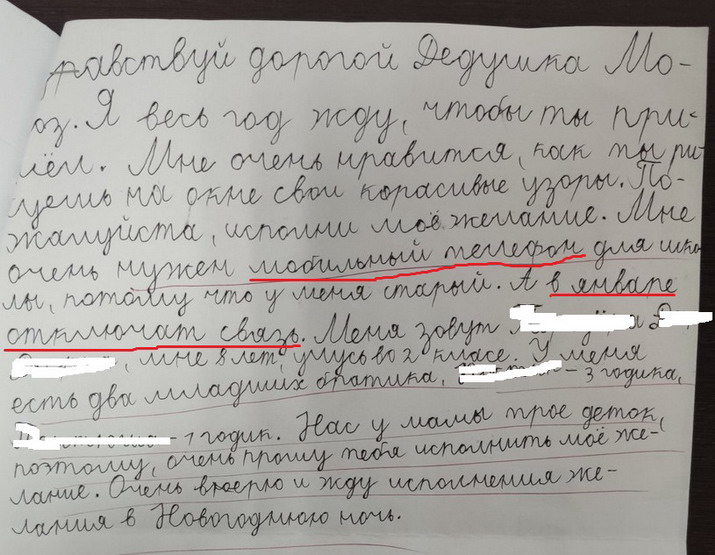 равствуй дорогой Дедушка Мо-
оз. Я весь год жду, чтобы ты при-
шёл. Мне очень нравится, как ты ри-
суешь на окне свои корасивые узоры. По-
жалуйста, исполни моё желание. Мне
очень нужен мобильный телефон для шко
лы, потому что у меня старый. А в январе
отключат связь. Меня зовут
, мне 8 лет, учусь во 2 класе. У меня
есть два младших братика, – 3 годика,
– 1 годик. Нас у мамы трое деток,
поэтому, очень прошу тебя исполнить моё же-
лание. Очень вюерю и жду исполнения же-
лания в Новогоднюю ночь.